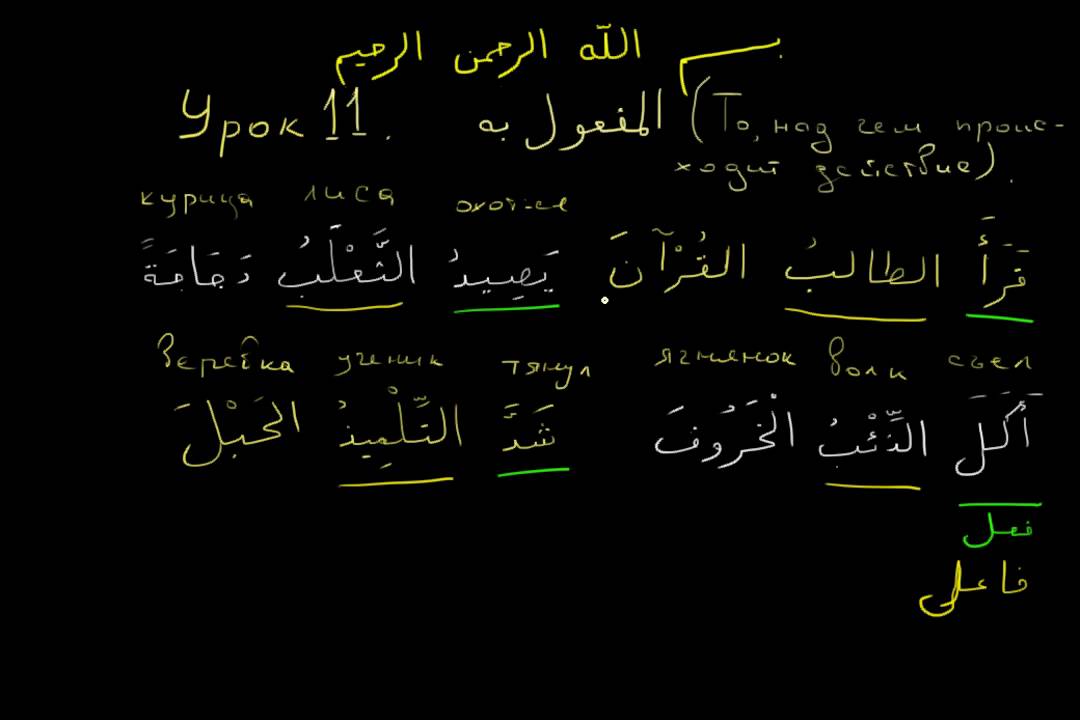 بسم الله الرحمن الرحيم
Урок 11. المفعول به (То, над чем проис-
ходит действие).
курица лиса охотися
قَرَأَ الطالبُ القُرْآنَ يَصِيدُ الثَّعْلَبُ دَجَاجَةً
верёвка ученик тянул ягнёнок волк съел
أَكَلَ الذِّئْبُ الْخَرُوفَ شَدَّ التِّلْمِيذُ الحَبْلَ
فعل
فاعل